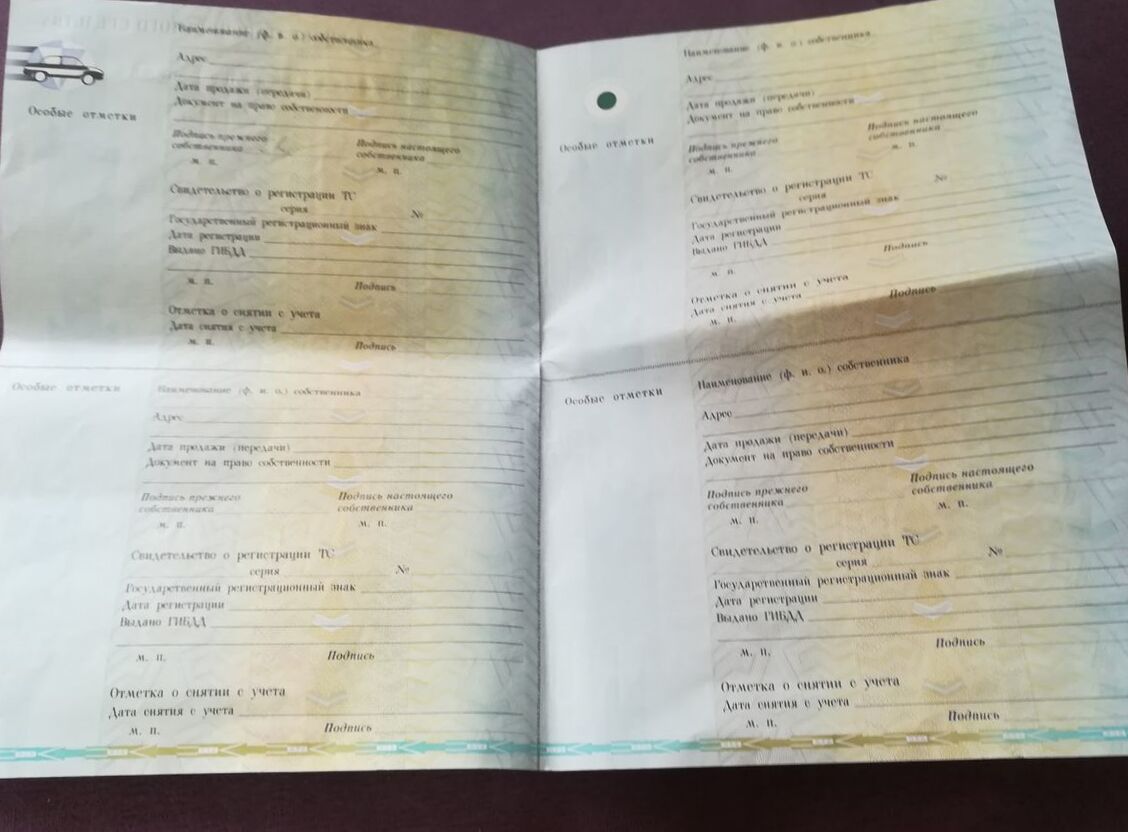 Особые отметки
Наименование (ф. и. о.) собственника
Адрес
Дата продажи (передачи)
Документ на право собственности
Подпись прежнего собственника
Подпись настоящего собственника
м. п.
м. п.
Свидетельство о регистрации ТС
серия №
Государственный регистрационный знак
Дата регистрации
Выдано ГИБДД
м. п. Подпись
Отметка о снятии с учета
Дата снятия с учета
м. п. Подпись
Особые отметки
Наименование (ф. и. о.) собственника
Адрес
Дата продажи (передачи)
Документ на право собственности
Подпись прежнего собственника
Подпись настоящего собственника
м. п.
м. п.
Свидетельство о регистрации ТС
серия №
Государственный регистрационный знак
Дата регистрации
Выдано ГИБДД
м. п. Подпись
Отметка о снятии с учета
Дата снятия с учета
м. п. Подпись
Особые отметки
Наименование (ф. и. о.) собственника
Адрес
Дата продажи (передачи)
Документ на право собственности
Подпись прежнего собственника
Подпись настоящего собственника
м. п. м. п.
Свидетельство о регистрации ТС
серия №
Государственный регистрационный знак
Дата регистрации
Выдано ГИБДД
м. п. Подпись
Отметка о снятии с учета
Дата снятия с учета
м. п. Подпись
Особые отметки
Наименование (ф. и. о.) собственника
Адрес
Дата продажи (передачи)
Документ на право собственности
Подпись прежнего собственника
Подпись настоящего собственника
м. п. м. п.
Свидетельство о регистрации ТС
серия №
Государственный регистрационный знак
Дата регистрации
Выдано ГИБДД
м. п. Подпись
Отметка о снятии с учета
Дата снятия с учета
м. п. Подпись